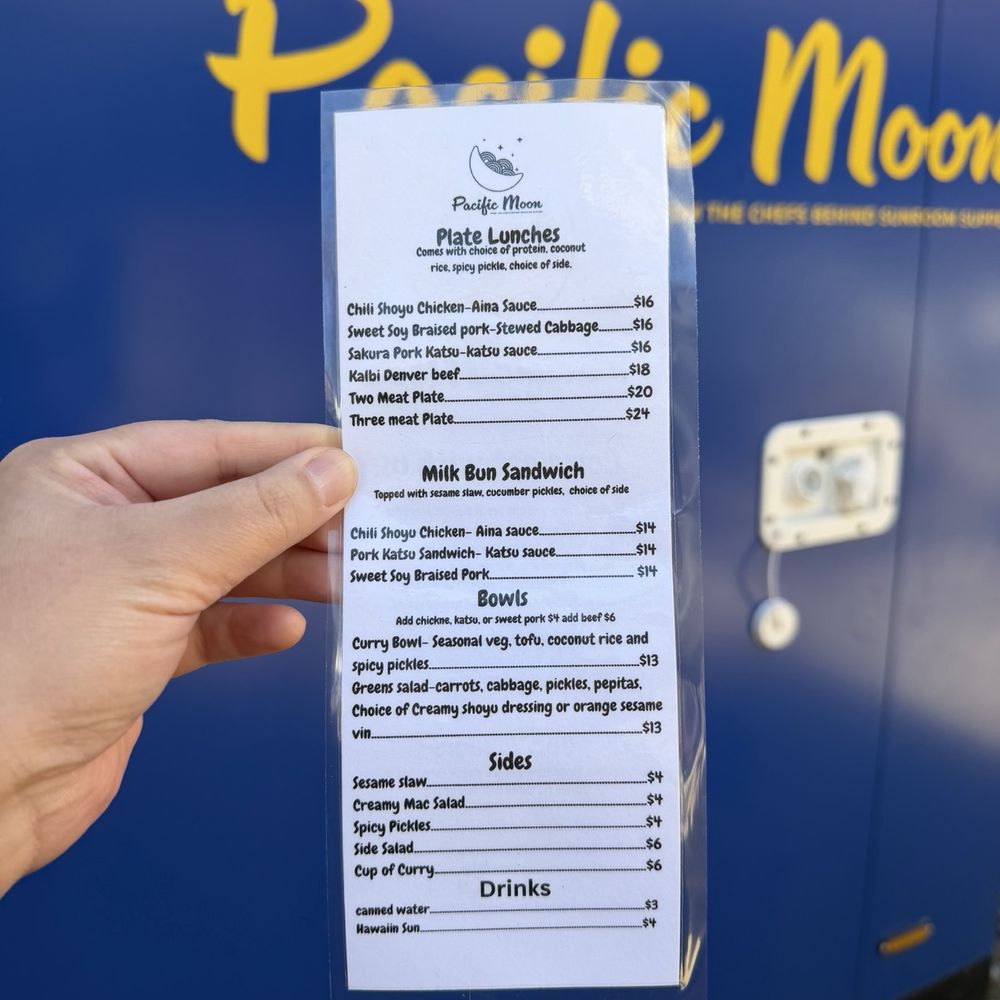 Pacific Moon
THE CHEFS BEHIND SUNROOM SUPP
Pacific Moon
Plate Lunches
Comes with choice of protein, coconut
rice, spicy pickle, choice of side.
Chili Shoyu Chicken-Aina Sauce $16
Sweet Soy Braised pork-Stewed Cabbage $16
Sakura Pork Katsu-katsu sauce $16
Kalbi Denver beef $18
Two Meat Plate $20
Three meat Plate $24
Milk Bun Sandwich
Topped with sesame slaw, cucumber pickles, choice of side
Chili Shoyu Chicken- Aina sauce $14
Pork Katsu Sandwich- Katsu sauce $14
Sweet Soy Braised Pork $14
Bowls
Add chickne, katsu, or sweet pork $4 add beef $6
Curry Bowl- Seasonal veg, tofu, coconut rice and
spicy pickles $13
Greens salad-carrots, cabbage, pickles, pepitas,
Choice of Creamy shoyu dressing or orange sesame
vin $13
Sides
Sesame slaw $4
Creamy Mac Salad $4
Spicy Pickles $4
Side Salad $6
Cup of Curry $6
Drinks
canned water $3
Hawaiin Sun $4